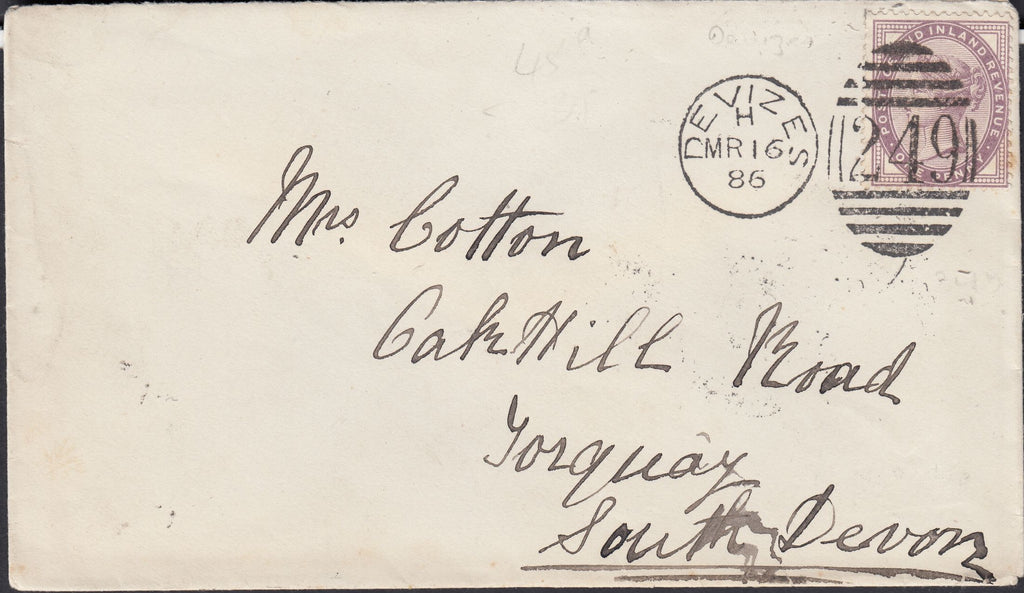 DEVIZES
H
MR 16
86
249
POSTAGE AND INLAND REVENUE
ONE PENNY
Mrs. Cotton
Oak Hill Road
Torquay
South Devon